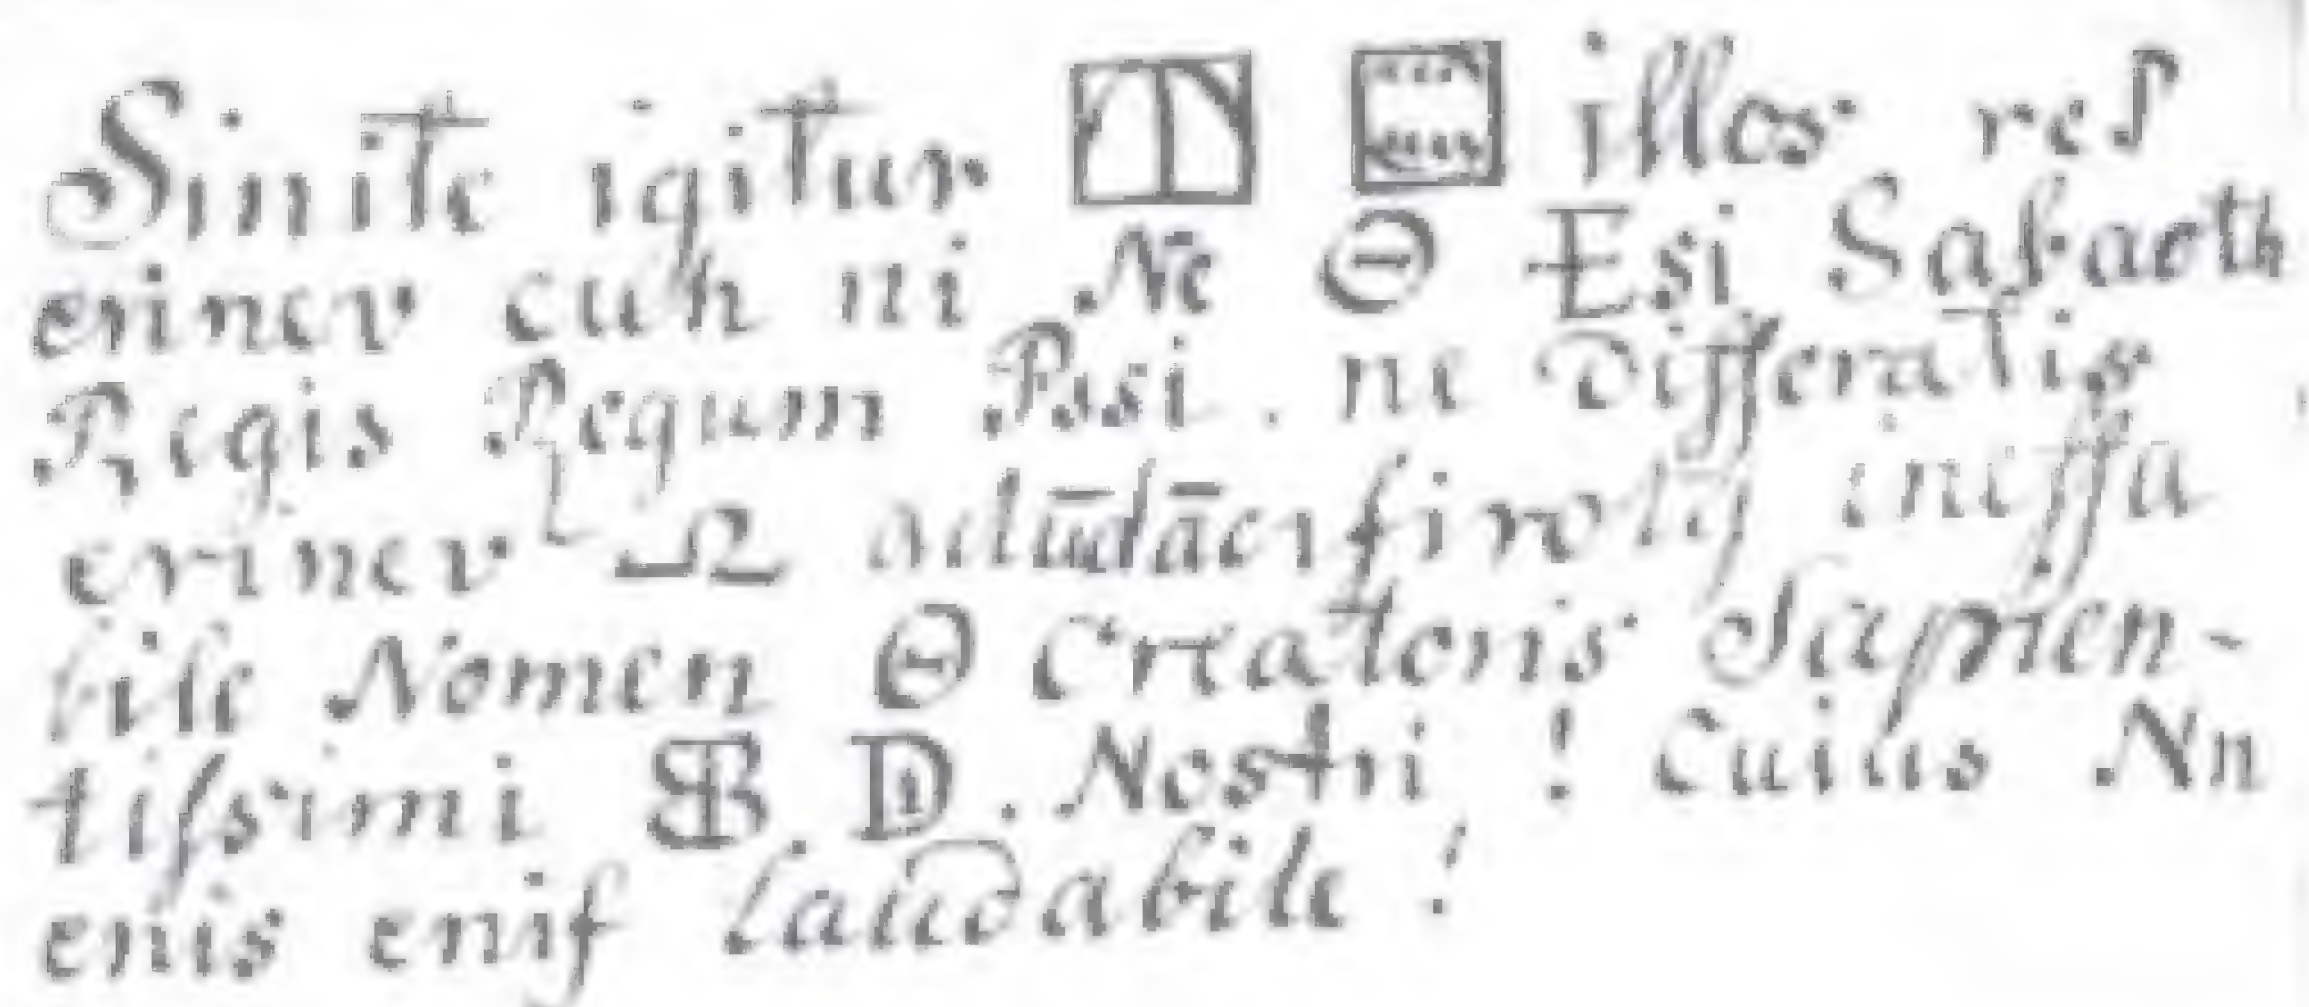 Sinite igitur illos res
erinev cuh ni Ne Θ Esi Sabaoth
Regis Regum Posi. ne Differatis
erinev Ω ineffa
bile Nomen Θ Creatoris Sapien-
tissimi D. Nostri! Cuius Nn
enis enif laudabile!